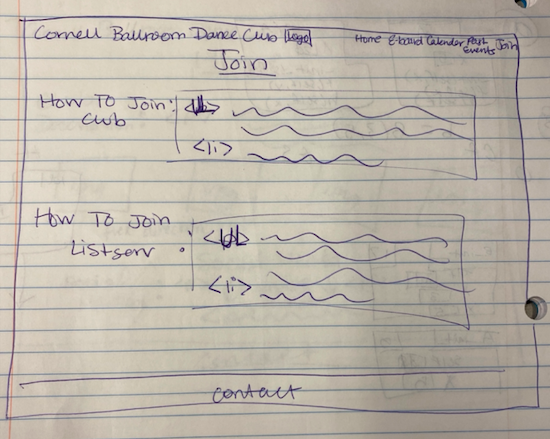 Cornell Ballroom Dance Club Logo Home E-board Calendar Past Events Join
Join
How To Join:
club
<li>
How To Join
Listserv :
<li>
contact